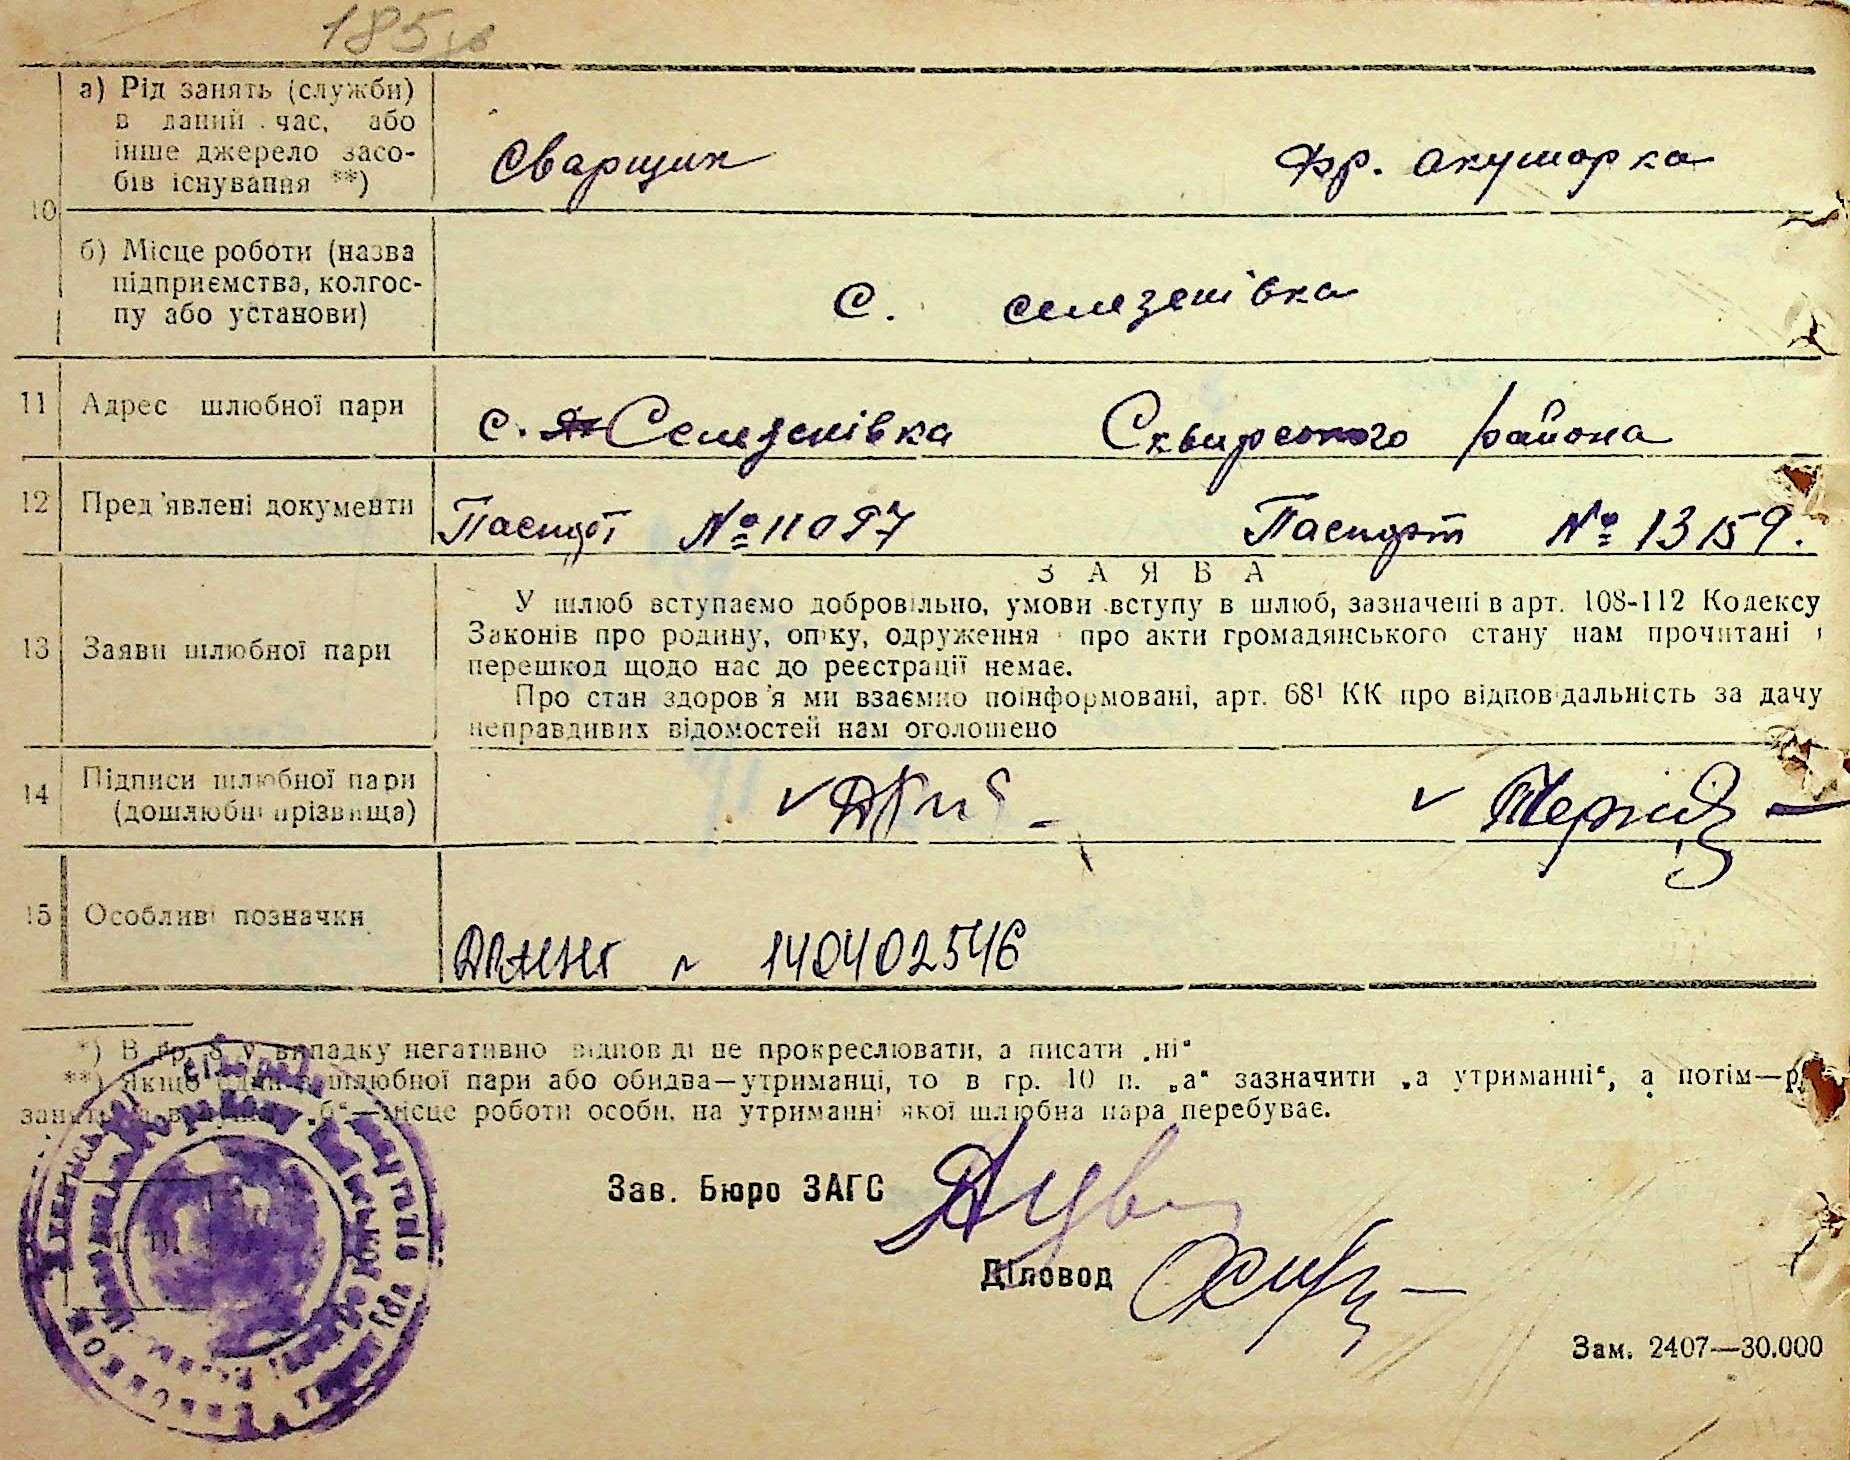 185
10
а) Рід занять (служби)
в даний час, або
інше джерело засо-
бів існування **)
Сварщик
Фр. акушорка
б) Місце роботи (назва
підприємства, колгос-
пу або установи)
с. селезенівка
11 Адрес шлюбної пари
с. Селезенівка Сквирського района
12 Пред'явлені документи
Паспорт № 11097 Паспорт № 13159.
ЗАЯВА
13 Заяви шлюбної пари
У шлюб вступаємо добровільно, умови вступу в шлюб, зазначені в арт. 108-112 Кодексу
Законів про родину, опіку, одруження і про акти громадянського стану нам прочитані і
перешкод щодо нас до реєстрації немає.
Про стан здоров'я ми взаємно поінформовані, арт. 68¹ КК про відповідальність за дачу
неправдивих відомостей нам оголошено
14 Підписи шлюбної пари
(дошлюбні прізвища)
15 Особливі позначки
140402546
*) В гр. 8 у випадку негативно відповіді не прокреслювати, а писати „ні“
**) Якщо один з шлюбної пари або обидва—утриманці, то в гр. 10 п. „а“ зазначити „а утриманні“, а потім—
„б“—місце роботи особи, на утриманні якої шлюбна пара перебуває.
Зав. Бюро ЗАГС
Діловод
Зам. 2407—30.000